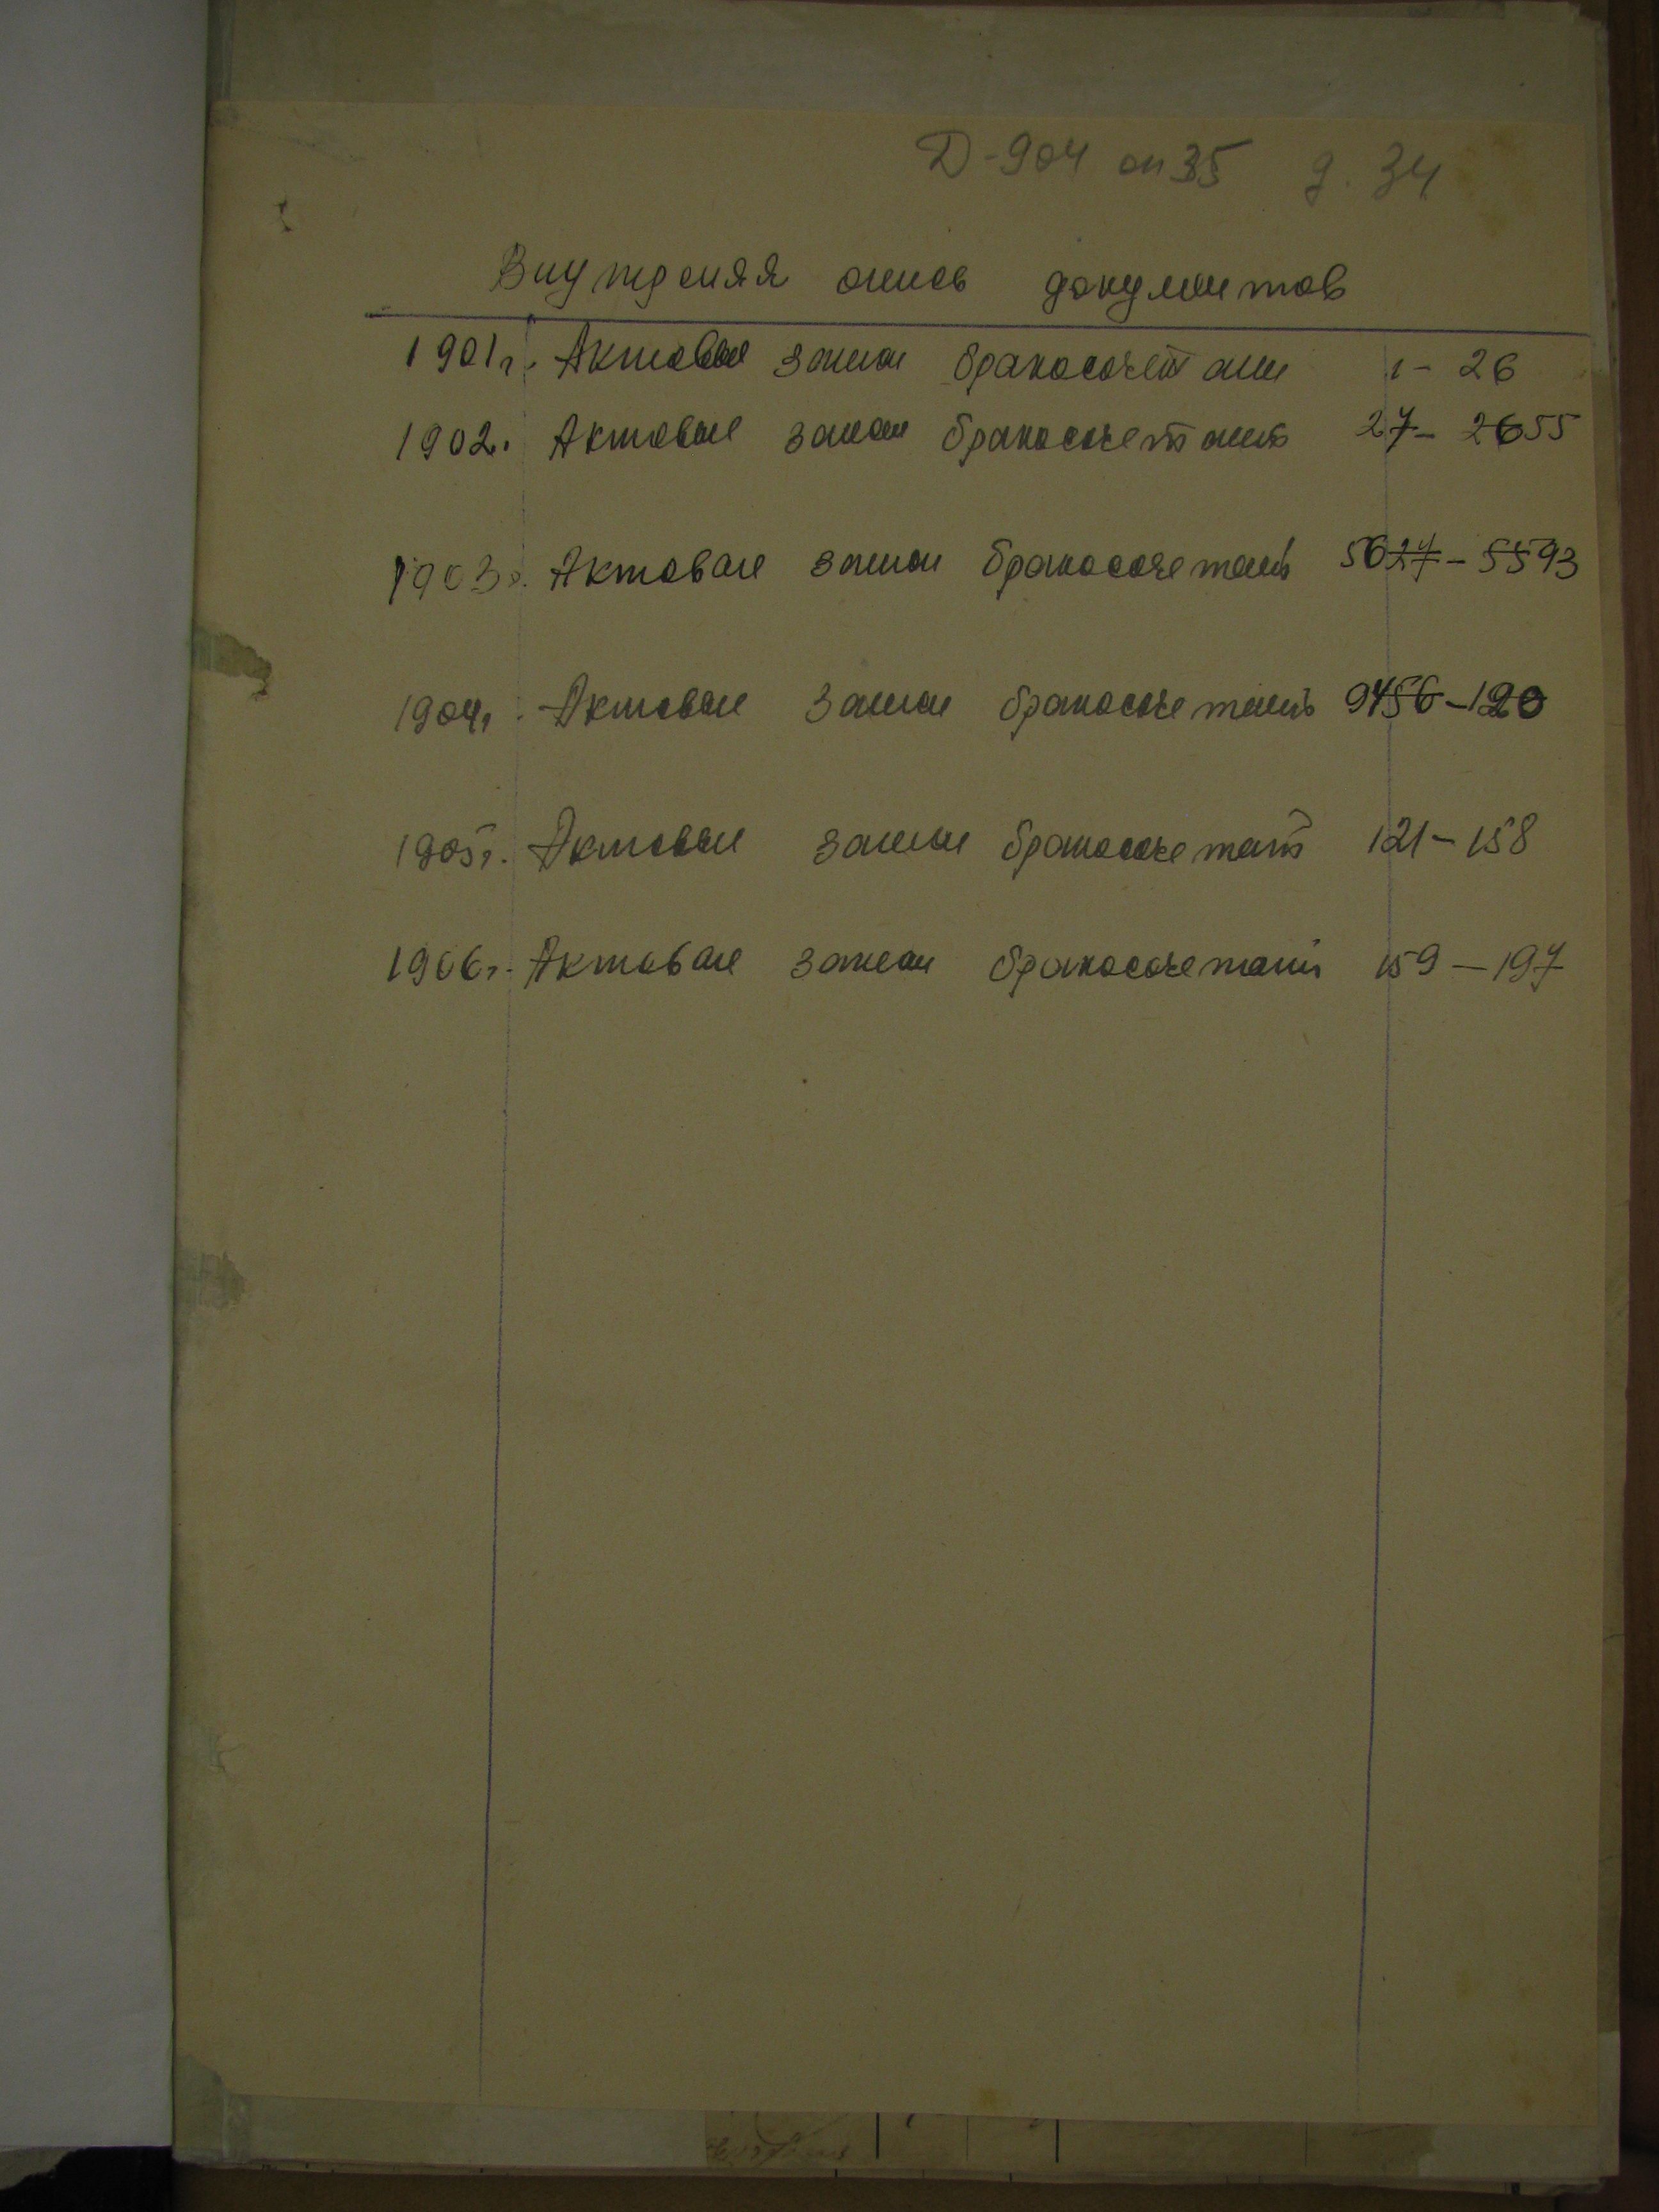 Д-904 оп 35 д. 34
Внутреняя опись документов
1901г. Актовые записи бракосочетании 1 - 26
1902г. Актовые записи бракосочетание 27 - 2655
1903г. Актовые записи бракосочетание 5627 - 5593
1904г. Актовые записи бракосочетание 9456 - 120
1905г. Актовые записи бракосочетаний 121 - 158
1906г. Актовые записи бракосочетании 159 - 197